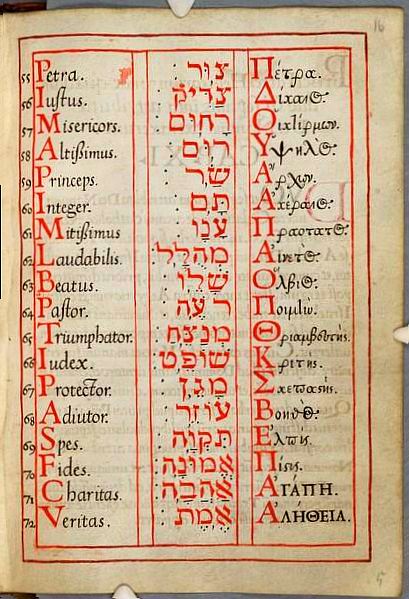 16
55 Petra. צור Πέτρα.
56 Iustus. צדיק Δίκαιος.
57 Misericors. רחום Οἰκτίρμων.
58 Altissimus. רום Ὑψηλός.
59 Princeps. שר Ἄρχων.
60 Integer. תם Ἀκέραιος.
61 Mitissimus ענו Πραότατος.
62 Laudabilis. מהלל Αἰνετός.
63 Beatus. שלוי Ὄλβιος.
64 Pastor. רעה Ποιμὼν.
65 Triumphator. מנצח Θριαμβευτής.
66 Iudex. שופט Κριτής.
67 Protector. מגן Σκεπαστής.
68 Adiutor. עוזר Βοηθός.
69 Spes. תקוה Ἐλπίς.
70 Fides. אמונה Πίστις.
71 Charitas. אהבה ΑΓΑΠΗ.
72 Veritas. אמת ΑΛΗΘΕΙΑ.